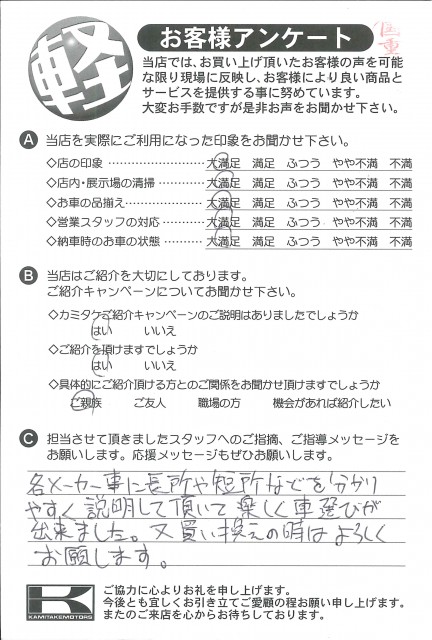 軽
お客様アンケート
当店では、お買い上げ頂いたお客様の声を可能
な限り現場に反映し、お客様により良い商品と
サービスを提供する事に努めています。
大変お手数ですが是非お声をお聞かせ下さい。
A 当店を実際にご利用になった印象をお聞かせ下さい。
◇店の印象 …………………… 大満足 満足 ふつう やや不満 不満
◇店内・展示場の清掃………… 大満足 満足 ふつう やや不満 不満
◇お車の品揃え………………… 大満足 満足 ふつう やや不満 不満
◇営業スタッフの対応………… 大満足 満足 ふつう やや不満 不満
◇納車時のお車の状態………… 大満足 満足 ふつう やや不満 不満
B 当店はご紹介を大切にしております。
ご紹介キャンペーンについてお聞かせ下さい。
◇カミタケご紹介キャンペーンのご説明はありましたでしょうか
はい いいえ
◇ご紹介を頂けますでしょうか
はい いいえ
◇具体的にご紹介頂ける方とのご関係をお聞かせ頂けますでしょうか
ご親族 ご友人 職場の方 機会があれば紹介したい
C 担当させて頂きましたスタッフへのご指摘、ご指導メッセージを
お願いします。応援メッセージもぜひお願いします。
各メーカー車に長所や短所などを分かり
やすく説明して頂いて楽しく車選びが
出来ました。又買い換えの時はよろしく
お願いします。
K
KAMITAKEMOTORS
ご協力に心よりお礼を申し上げます。
今後とも宜しくお引き立てご愛顧の程お願い申し上げます。
またのご来店を心からお待ちしております。